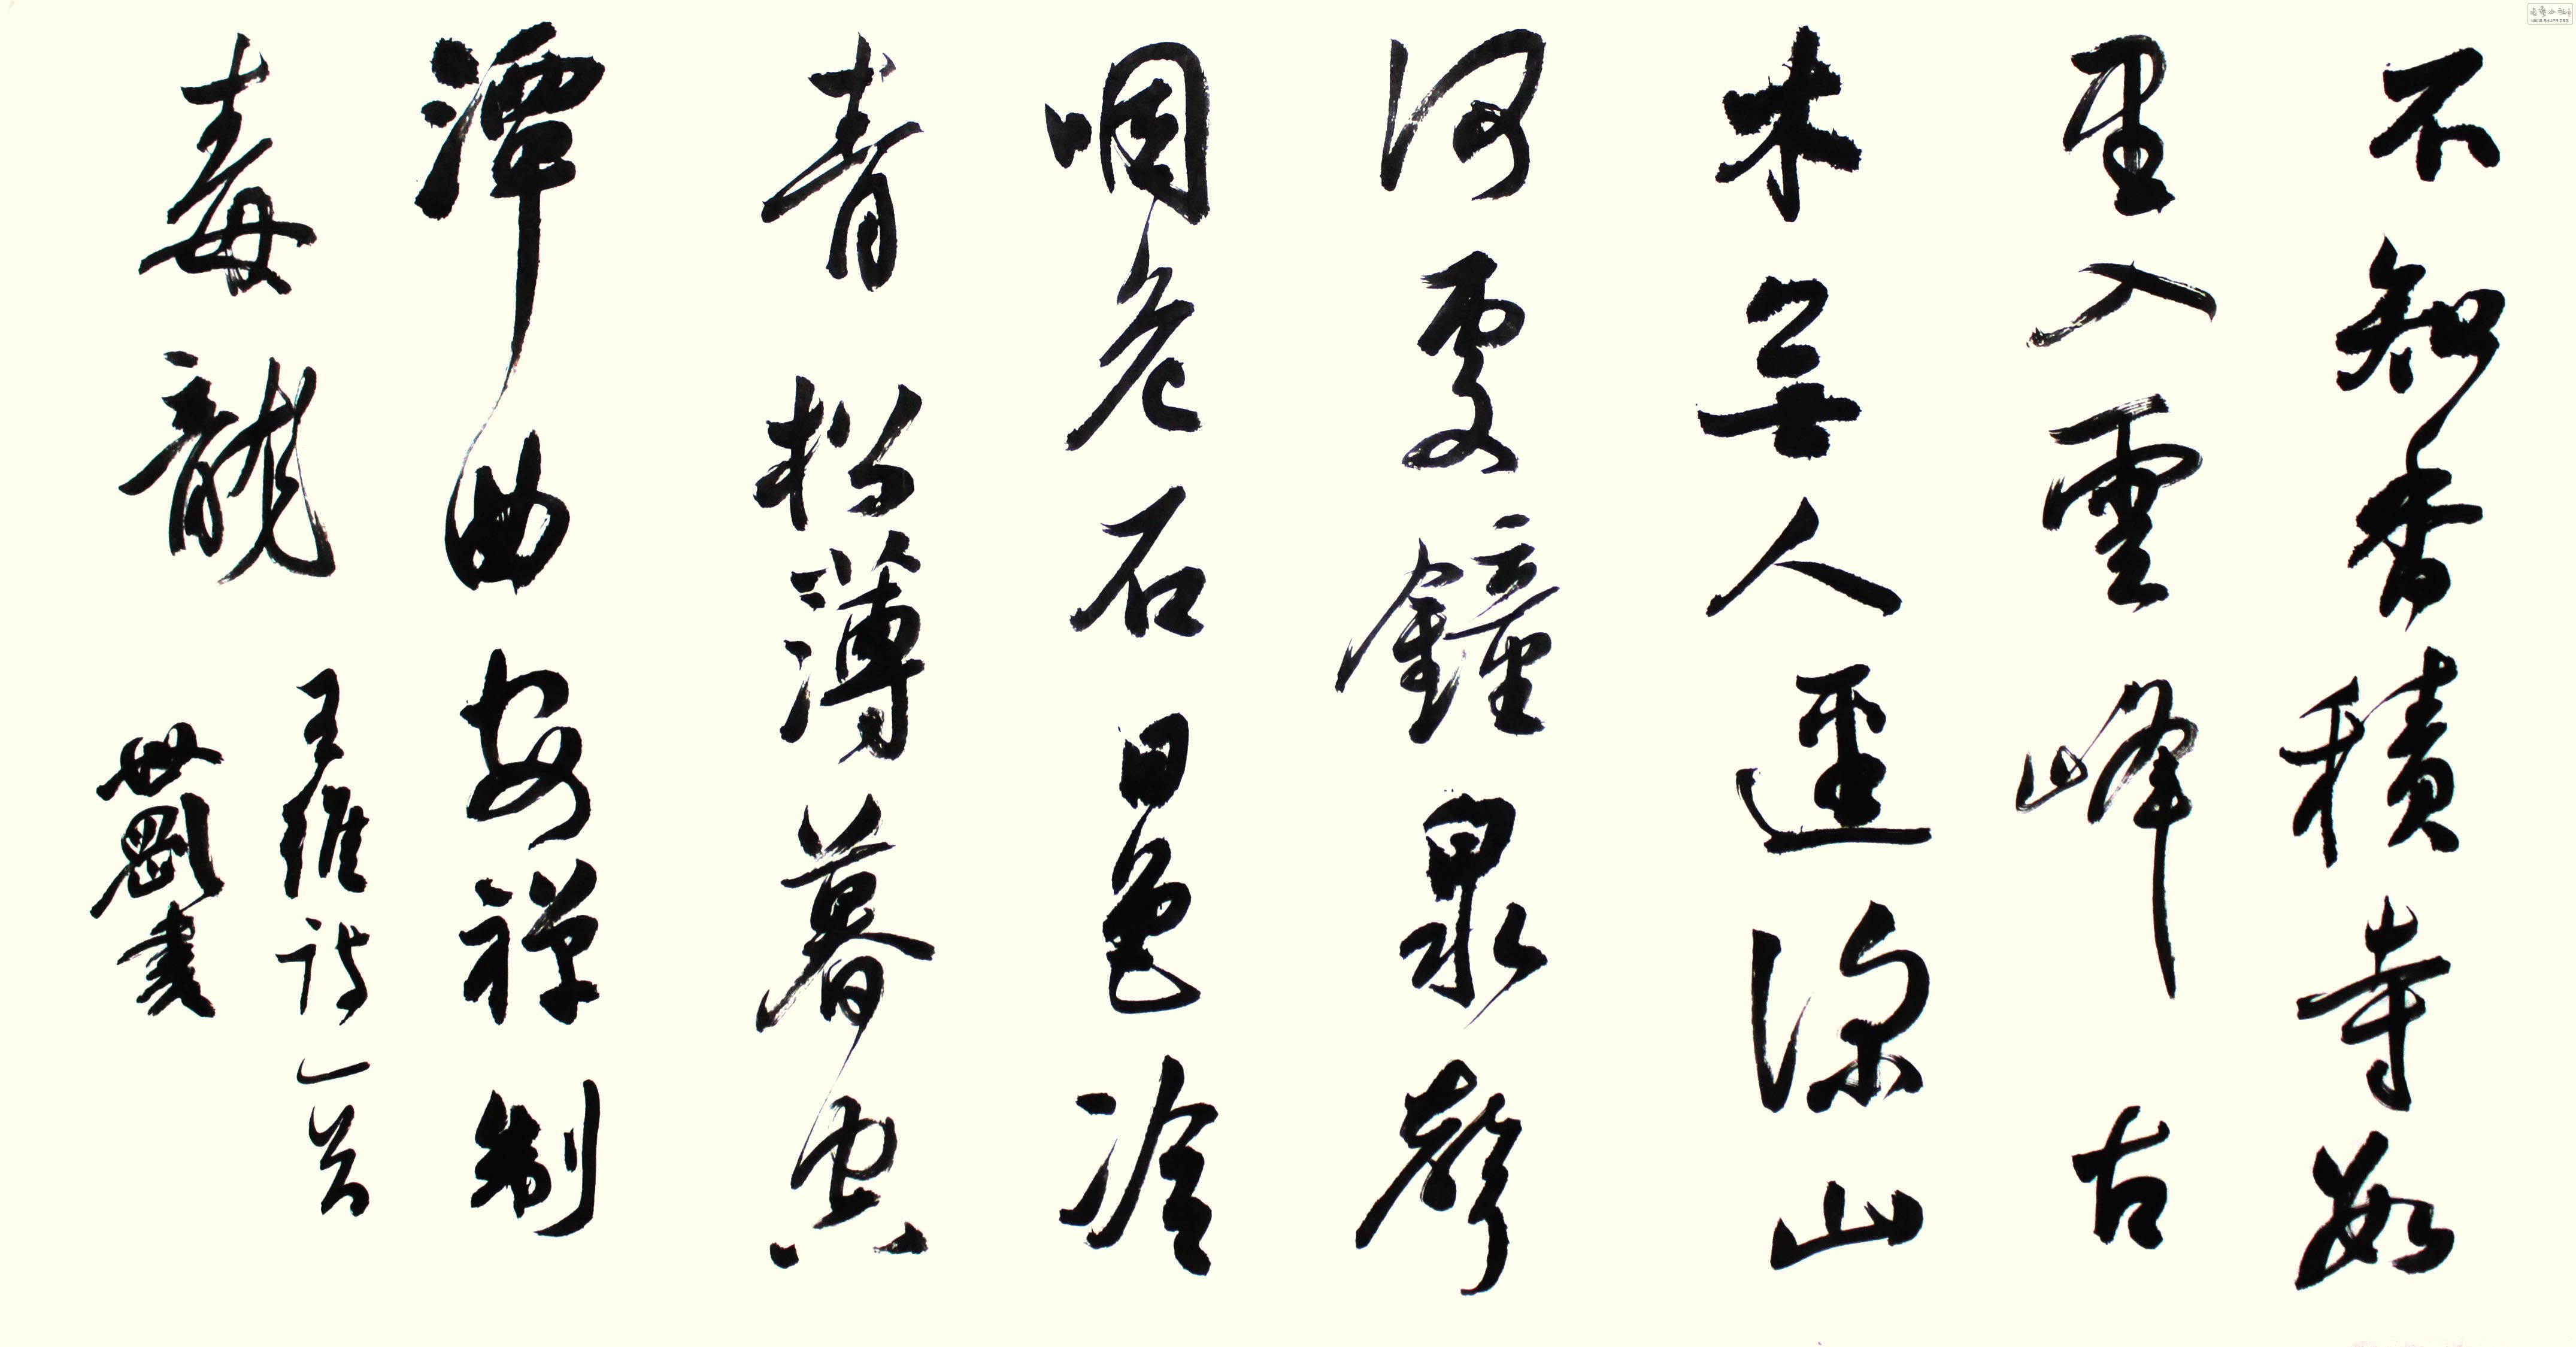 不知香積寺數
里入雲峰古
木無人逕深山
何處鐘泉聲
咽危石日色冷
青松薄暮空
潭曲安禪制
毒龍
王維詩一首
世剛書